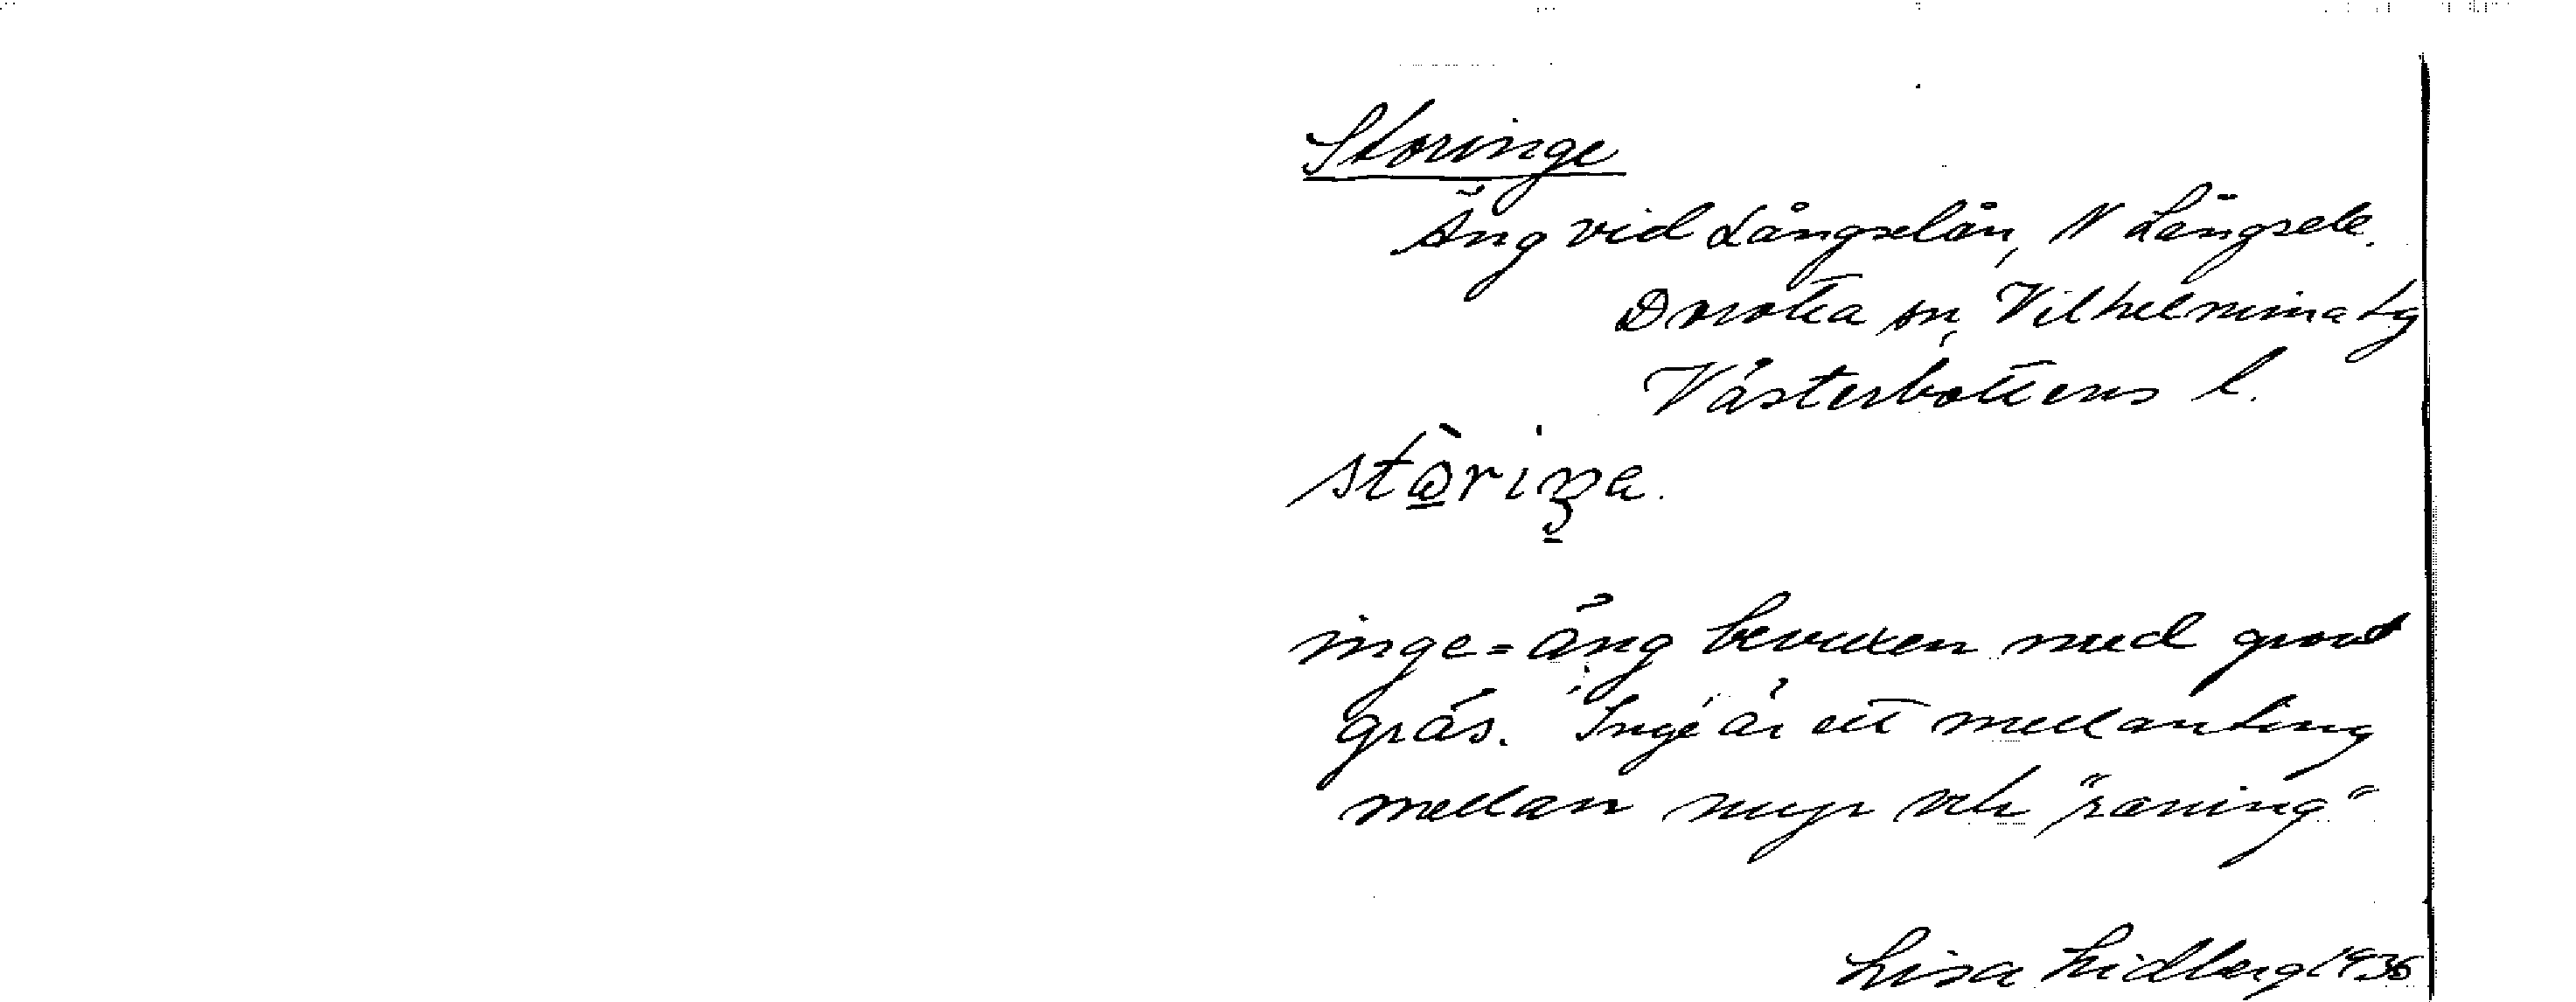 Storinge
Äng vid Långselån, N Långsele.
Dorotea sn, Vilhelmina tg
Västerbottens l.
stòriŋa.
inge = äng bevuxen med grovt
gräs. "Inge" är ett mellanting
mellan myr och "raning"
Lisa Lidberg 1936